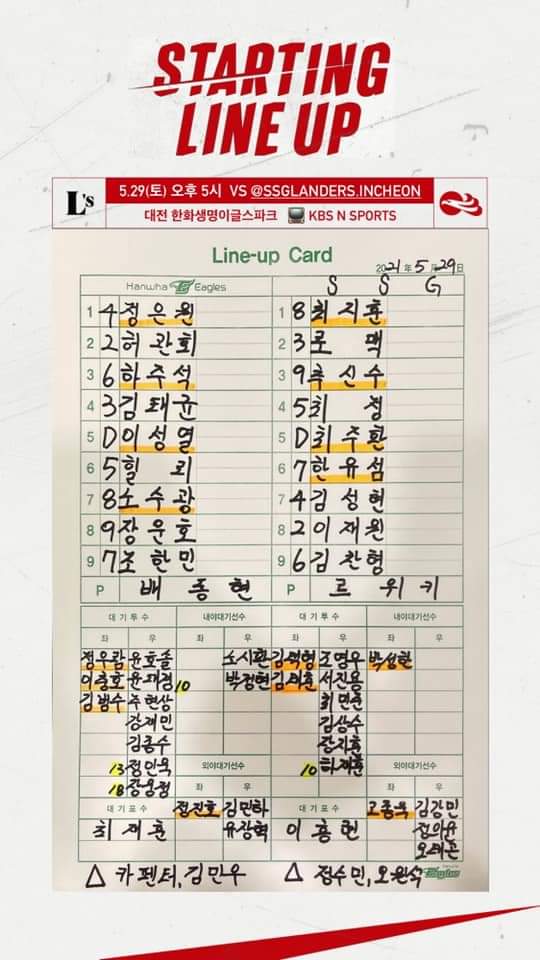 STARTING
LINE UP
L's
5.29(토) 오후 5시 VS @SSGLANDERS.INCHEON
대전 한화생명이글스파크 KBS N SPORTS
Line-up Card
2021년 5월 29일
Hanwha Eagles S S G
1 4 정은원 1 8 최지훈
2 2 허관회 2 3 로맥
3 6 하주석 3 9 추신수
4 3 김태균 4 5 최정
5 D 이성열 5 D 최주환
6 5 힐리 6 7 한유섬
7 8 노수광 7 4 김성현
8 9 장운호 8 2 이재원
9 7 조한민 9 6 김찬형
P 배동현 P 르위키
대기투수 내야대기선수 대기투수 내야대기선수
좌 우 좌 우 좌 우 좌 우
정우람 윤호솔 노시환 김택형 조영우 박성한
이충호 윤대경 10 박정현 김태훈 서진용
김범수 주현상 최민준
강재민 김상수
김종수 장지훈
13 정인욱 외야대기선수 10 하재훈 외야대기선수
18 장웅정
대기포수 정진호 김민하 대기포수 고종욱 김강민
최재훈 유장혁 이흥련 정의윤
오태곤
△ 카펜터, 김민우 △ 정수민, 오원석 Eagles